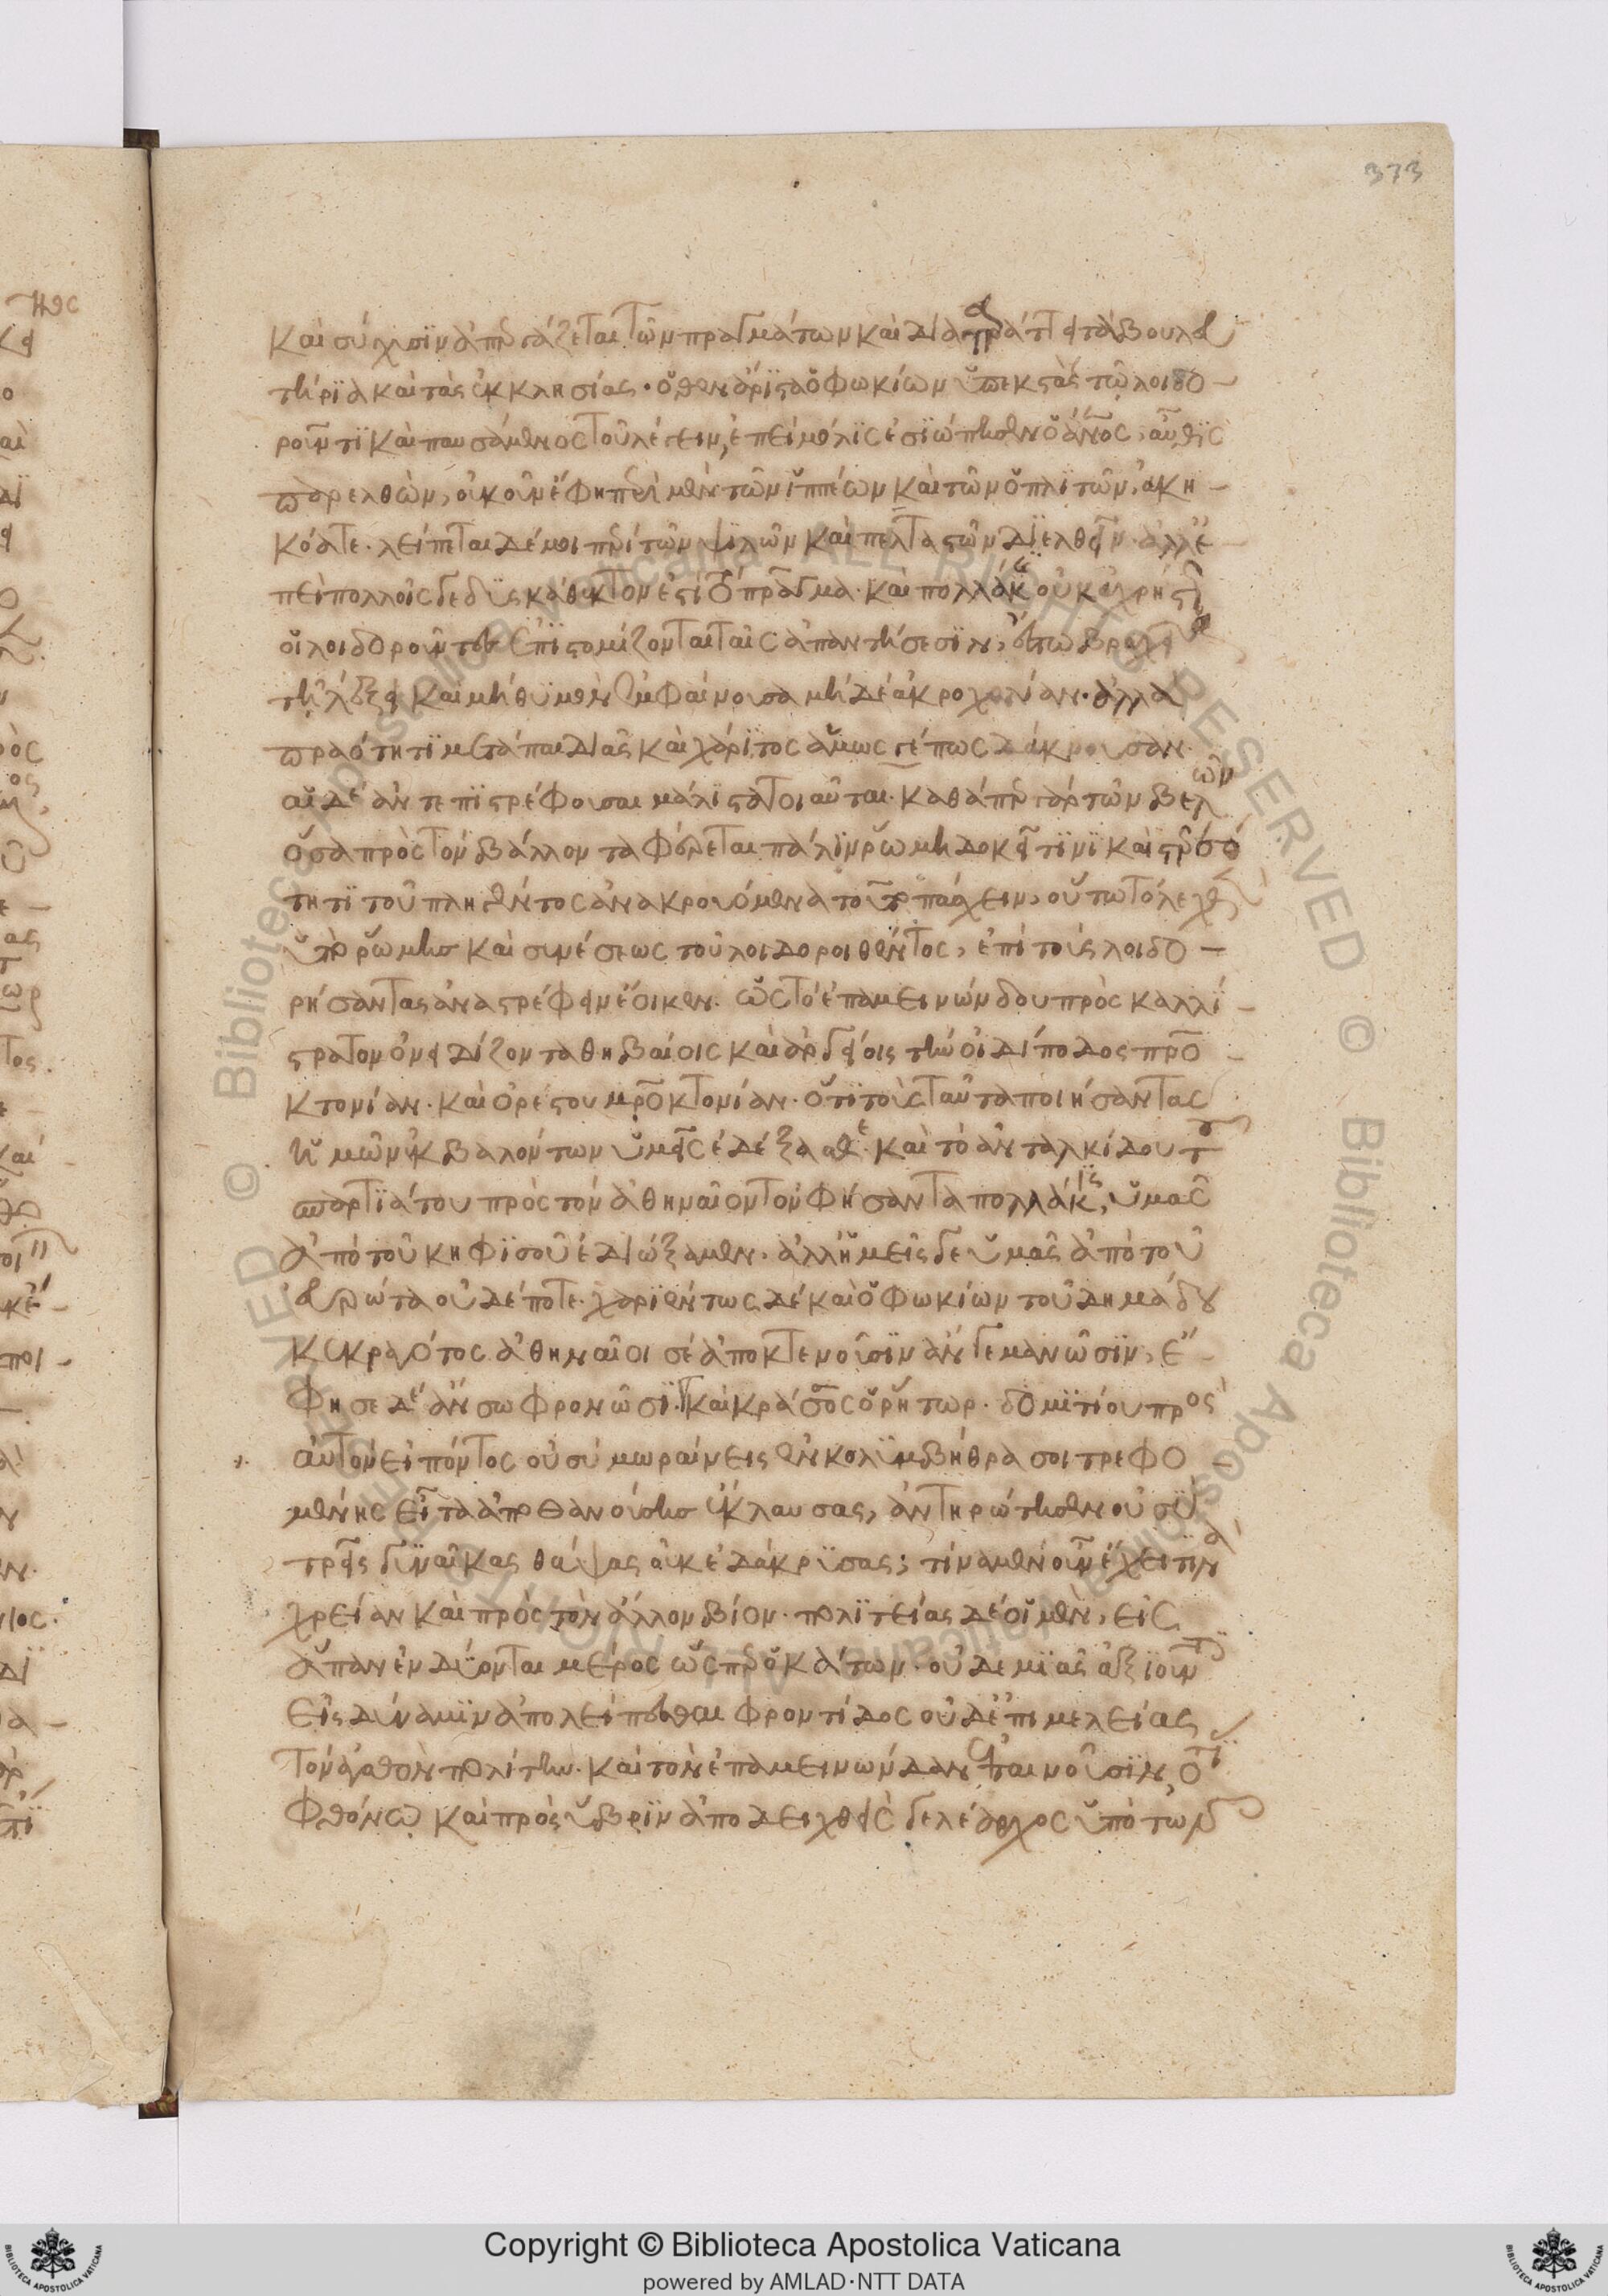 373
καὶ σύγχυσιν ἀπεργάζεται τῶν πραγμάτων καὶ διαταράττει τὰ βουλευ
τήρια καὶ τὰς ἐκκλησίας. ὅθεν ἄριστα ὁ φωκίων ὑπεκστὰς τῷ λοιδο-
ροῦντι καὶ παυσάμενος τοῦ λέγειν, ἐπεὶ μόλις ἐσιώπησεν ὁ ἄνος, αὖθις
παρελθών, οὐκοῦν ἔφη περὶ μὲν τῶν ἱππέων καὶ τῶν ὁπλιτῶν, ἀκη-
κόατε. λείπεται δέ μοι περὶ τῶν ψιλῶν καὶ πελταστῶν διελθεῖν. ἀλλ' ἐ-
πεὶ πολλοῖς γε δυσκάθεκτόν ἐστι τὸ πρᾶγμα. καὶ πολλάκις οὐκ ἀχρήστως
οἱ λοιδοροῦντες ἐπιστομίζονται ταῖς ἀπαντήσεσιν, ἔστω βραχεῖα
τῇ λέξει καὶ μὴ θυμὸν ἐμφαίνουσα μηδὲ ἀκροχολίαν. ἀλλὰ
πραότητι μετὰ παιδιᾶς καὶ χάριτος ἁμωσγέπως δάκνουσαν.
αἱ δὲ ἀντεπιστρέφουσαι μάλιστα τοιαῦται. καθάπερ γὰρ τῶν βελῶν
ὅσα πρὸς τὸν βάλλοντα φέρεται πάλιν ῥώμῃ δοκεῖ τινι καὶ στερρό
τητι τοῦ πληγέντος ἀνακρουόμενα τοῦτο πάσχειν, οὕτω τὸ λεχθὲν
ὑπὸ ῥώμης καὶ συνέσεως τοῦ λοιδορηθέντος, ἐπὶ τοὺς λοιδο-
ρήσαντας ἀναστρέφειν ἔοικεν. ὡς τὸ ἐπαμεινώνδου πρὸς καλλί-
στρατον ὀνειδίζοντα θηβαίοις καὶ ἀργείοις τὴν οἰδίποδος προ-
κτονίαν. καὶ ὀρέστου μροκτονίαν. ὅτι τοὺς ταῦτα ποιήσαντας
ἡμῶν ἐκβαλόντων ὑμεῖς ἐδέξασθε. καὶ τὸ ἀνταλκίδου τοῦ
σπαρτιάτου πρὸς τὸν ἀθηναῖον τὸν φήσαντα πολλάκις, ὑμᾶς
ἀπὸ τοῦ κηφισοῦ ἐδιώξαμεν. ἀλλ' ἡμεῖς γε ὑμᾶς ἀπὸ τοῦ
εὐρώτα οὐδέποτε. χαριέντως δὲ καὶ ὁ φωκίων τοῦ δημάδου
κεκραγότος ἀθηναῖοι σὲ ἀποκτενοῦσιν ἄν γε μανῶσιν, ἔ-
φη σὲ δὲ ἂν σωφρονῶσι. καὶ κράσσος ὁ ῥήτωρ. δομιτίου πρὸς
αὐτὸν εἰπόντος οὐ σὺ μυραίνεις ἐν κολυμβήθρα σοι τρεφο-
μένης εἶτα ἀποθανούσης ἔκλαυσας, ἀντηρώτησεν οὐ σὺ
τρεῖς γυναῖκας θάψας οὐκ ἐδάκρυσας; ταῦτα μὲν οὖν ἔχει τινὰ
χρείαν καὶ πρὸς τὸν ἄλλον βίον. πολιτείας δὲ οἱ μὲν, εἰς
ἅπαν ἐνδύονται μέρος ὥσπερ ὁ κάτων. οὐδεμιᾶς ἀξιοῦντες
εἰς δύναμιν ἀπολείπεσθαι φροντίδος οὐδ' ἐπιμελείας
τὸν ἀγαθὸν πολίτην. καὶ τὸν ἐπαμεινώνδαν ἐπαινοῦσιν, ὅτι
φθόνω καὶ πρὸς ὕβριν ἀποδειχθεὶς τελέαρχος ὑπὸ τῶν
Copyright © Biblioteca Apostolica Vaticana
powered by AMLAD·NTT DATA